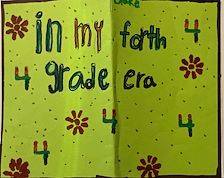 in my forth 4
4 grade era
4
4
4